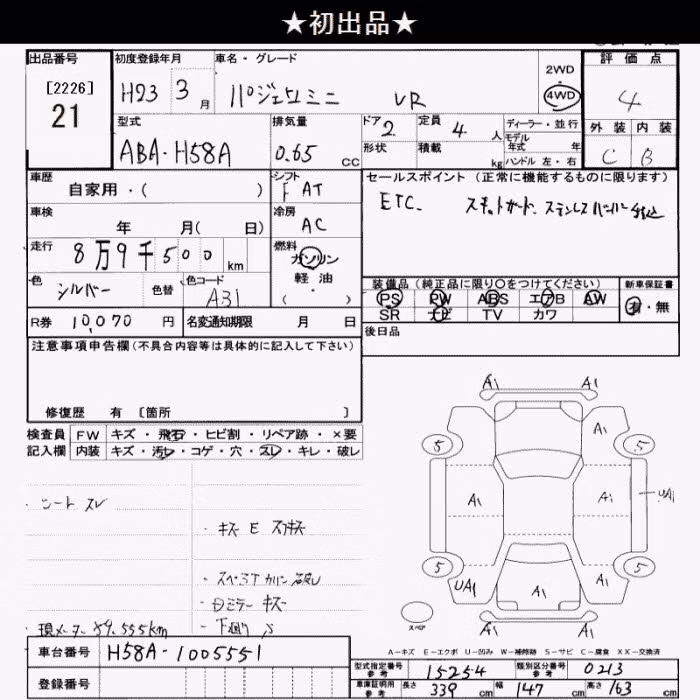 ★初出品★
出品番号
[2226]
21
初度登録年月
H23 3月
車名・グレード
パジェロミニ VR
2WD
4WD
評価点
4
外装 内装
C B
型式
ABA-H58A
排気量
0.65 cc
ドア 2
形状
定員 4 人
積載 kg
ディーラー・並行
モデル年式 年
ハンドル 左・右
車歴
自家用・( )
シフト
F AT
車検
年 月( 日)
冷房
AC
走行
8万9千500 km
燃料
ガソリン
軽油
( )
色
シルバー
色替
色コード
A31
R券 10,070 円
名変通知期限 月 日
セールスポイント (正常に機能するものに限ります)
ETC. スキッドガード ステンレスバンパー
装備品(純正品に限り○をつけてください)
PS PW ABS エアB AW
SR ナビ TV カワ
新車保証書
有・無
後日品
注意事項申告欄(不具合内容等は具体的に記入して下さい)
修復歴 有 〔箇所 〕
検査員
記入欄
FW キズ・飛石・ヒビ割・リペア跡・×要
内装 キズ・汚レ・コゲ・穴・スレ・キレ・破レ
シート スレ
キズ E スリキズ
スペアTカバー破レ
ミラー キズ
下廻り S
現メーター 89.555km
車台番号 H58A-1005551
登録番号
A1 A1
A1
5 5
A1 A1 UA1
5 5
UA1 A1 A1
スペア
A1 A1
A-キズ E-エクボ U-凹み W-補修跡 S-サビ C-腐食 XX-交換済
型式指定番号 参考 15254
類別区分番号 参考 0213
車庫証明用 参考 長さ 339 cm 幅 147 cm 高さ 163 cm